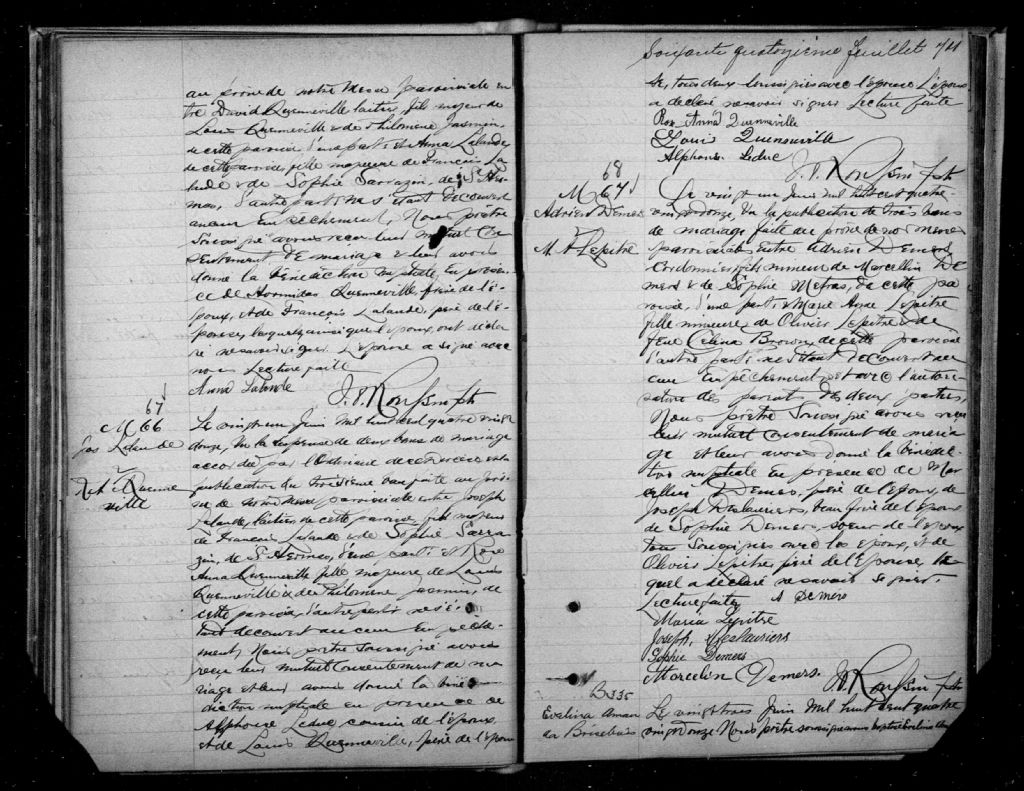 au prône de notre Messe paroissiale en
tre David Quenneville laitier, fils majeur de
Louis Quenneville & de Philomène Jasmin
de cette paroisse d'une part, et Anna Lalande,
de cette paroisse, fille majeure de François La
lande & de Sophie Sarrazin, de St Her
mas, d'autre part ne s'étant découvert
aucun Empêchement, Nous prêtre
Soussigné avons reçu leur mutuel Con
sentement de mariage & leur avons
donné la Bénédiction nuptiale En présen
ce de Hormidas Quenneville, frère de l'é
poux, & de François Lalande, père de l'é
pouse, lesquels ainsi que l'époux, ont décla
ré ne savoir signer. L'épouse a signé avec
nous Lecture faite
Anna Lalande
67
M 66
Jos Lalande
&
Quenne
ville
Le vingt un Juin mil huit cent quatre vingt
douze, Vu la dispense de deux bans de mariage
accordée par l'Ordinaire de ce Diocèse et la
publication du troisième ban faite au prô
ne de notre Messe paroissiale entre Joseph
Lalande, laitier de cette paroisse, fils majeur
de François Lalande & de Sophie Sarra
zin, de St Hermas, d'une part, et Rose
Anna Quenneville fille majeure de Louis
Quenneville & de Philomène Jasmin, de
cette paroisse, d'autre part ne s'é
tant découvert aucun Empêche
ment, Nous prêtre Soussigné avons
reçu leur mutuel Consentement de ma
riage et leur avons donné la béné
diction nuptiale en présence de
Alphonse Leduc cousin de l'époux
et de Louis Quenneville, père de l'épou
Soixante quatorzième feuillet 74
se, tous deux soussignés avec l'épouse L'époux
a déclaré ne savoir signer Lecture faite
Rose Anna Quenneville
Louis Quenneville
Alphonse Leduc
68
M 67
Adrien Demers
&
M. A Lepitre
Le vingt un Juin mil huit cent quatre
vingt douze, Vu la publication de trois bans
de mariage faite au prône de nos messes
paroissiales Entre Adrien Demers
Cordonnier, fils mineur de Marcellin De
mers & de Sophie Mefras, de cette pa
roisse, d'une part, & Marie Anne Lepitre
fille mineure, de Olivier Lepitre & de
feue Célina Brown, de cette paroisse
d'autre part, ne s'étant découvert au
cun Empêchement, et avec l'autori
sation des parents des deux parties,
Nous prêtre Soussigné avons reçu
leur mutuel consentement de maria
ge et leur avons donné la bénédic
tion nuptiale En présence de Mar
cellin Demers, père de l'époux, de
Joseph Deslauriers, beau frère de l'époux
de Sophie Demers, soeur de l'époux
tous soussignés avec les époux, et de
Olivier Lepitre, père de l'épouse, le
quel a déclaré ne savoir signer.
Lecture faite A Demers
Maria Lepitre
Joseph Deslauriers
Sophie Demers
Marcelin Demers.
B 335
Evelina Aman
da Brisebois
Le vingt trois Juin Mil huit cent quatre
vingt douze Nous prêtre soussigné avons baptisé Evelina